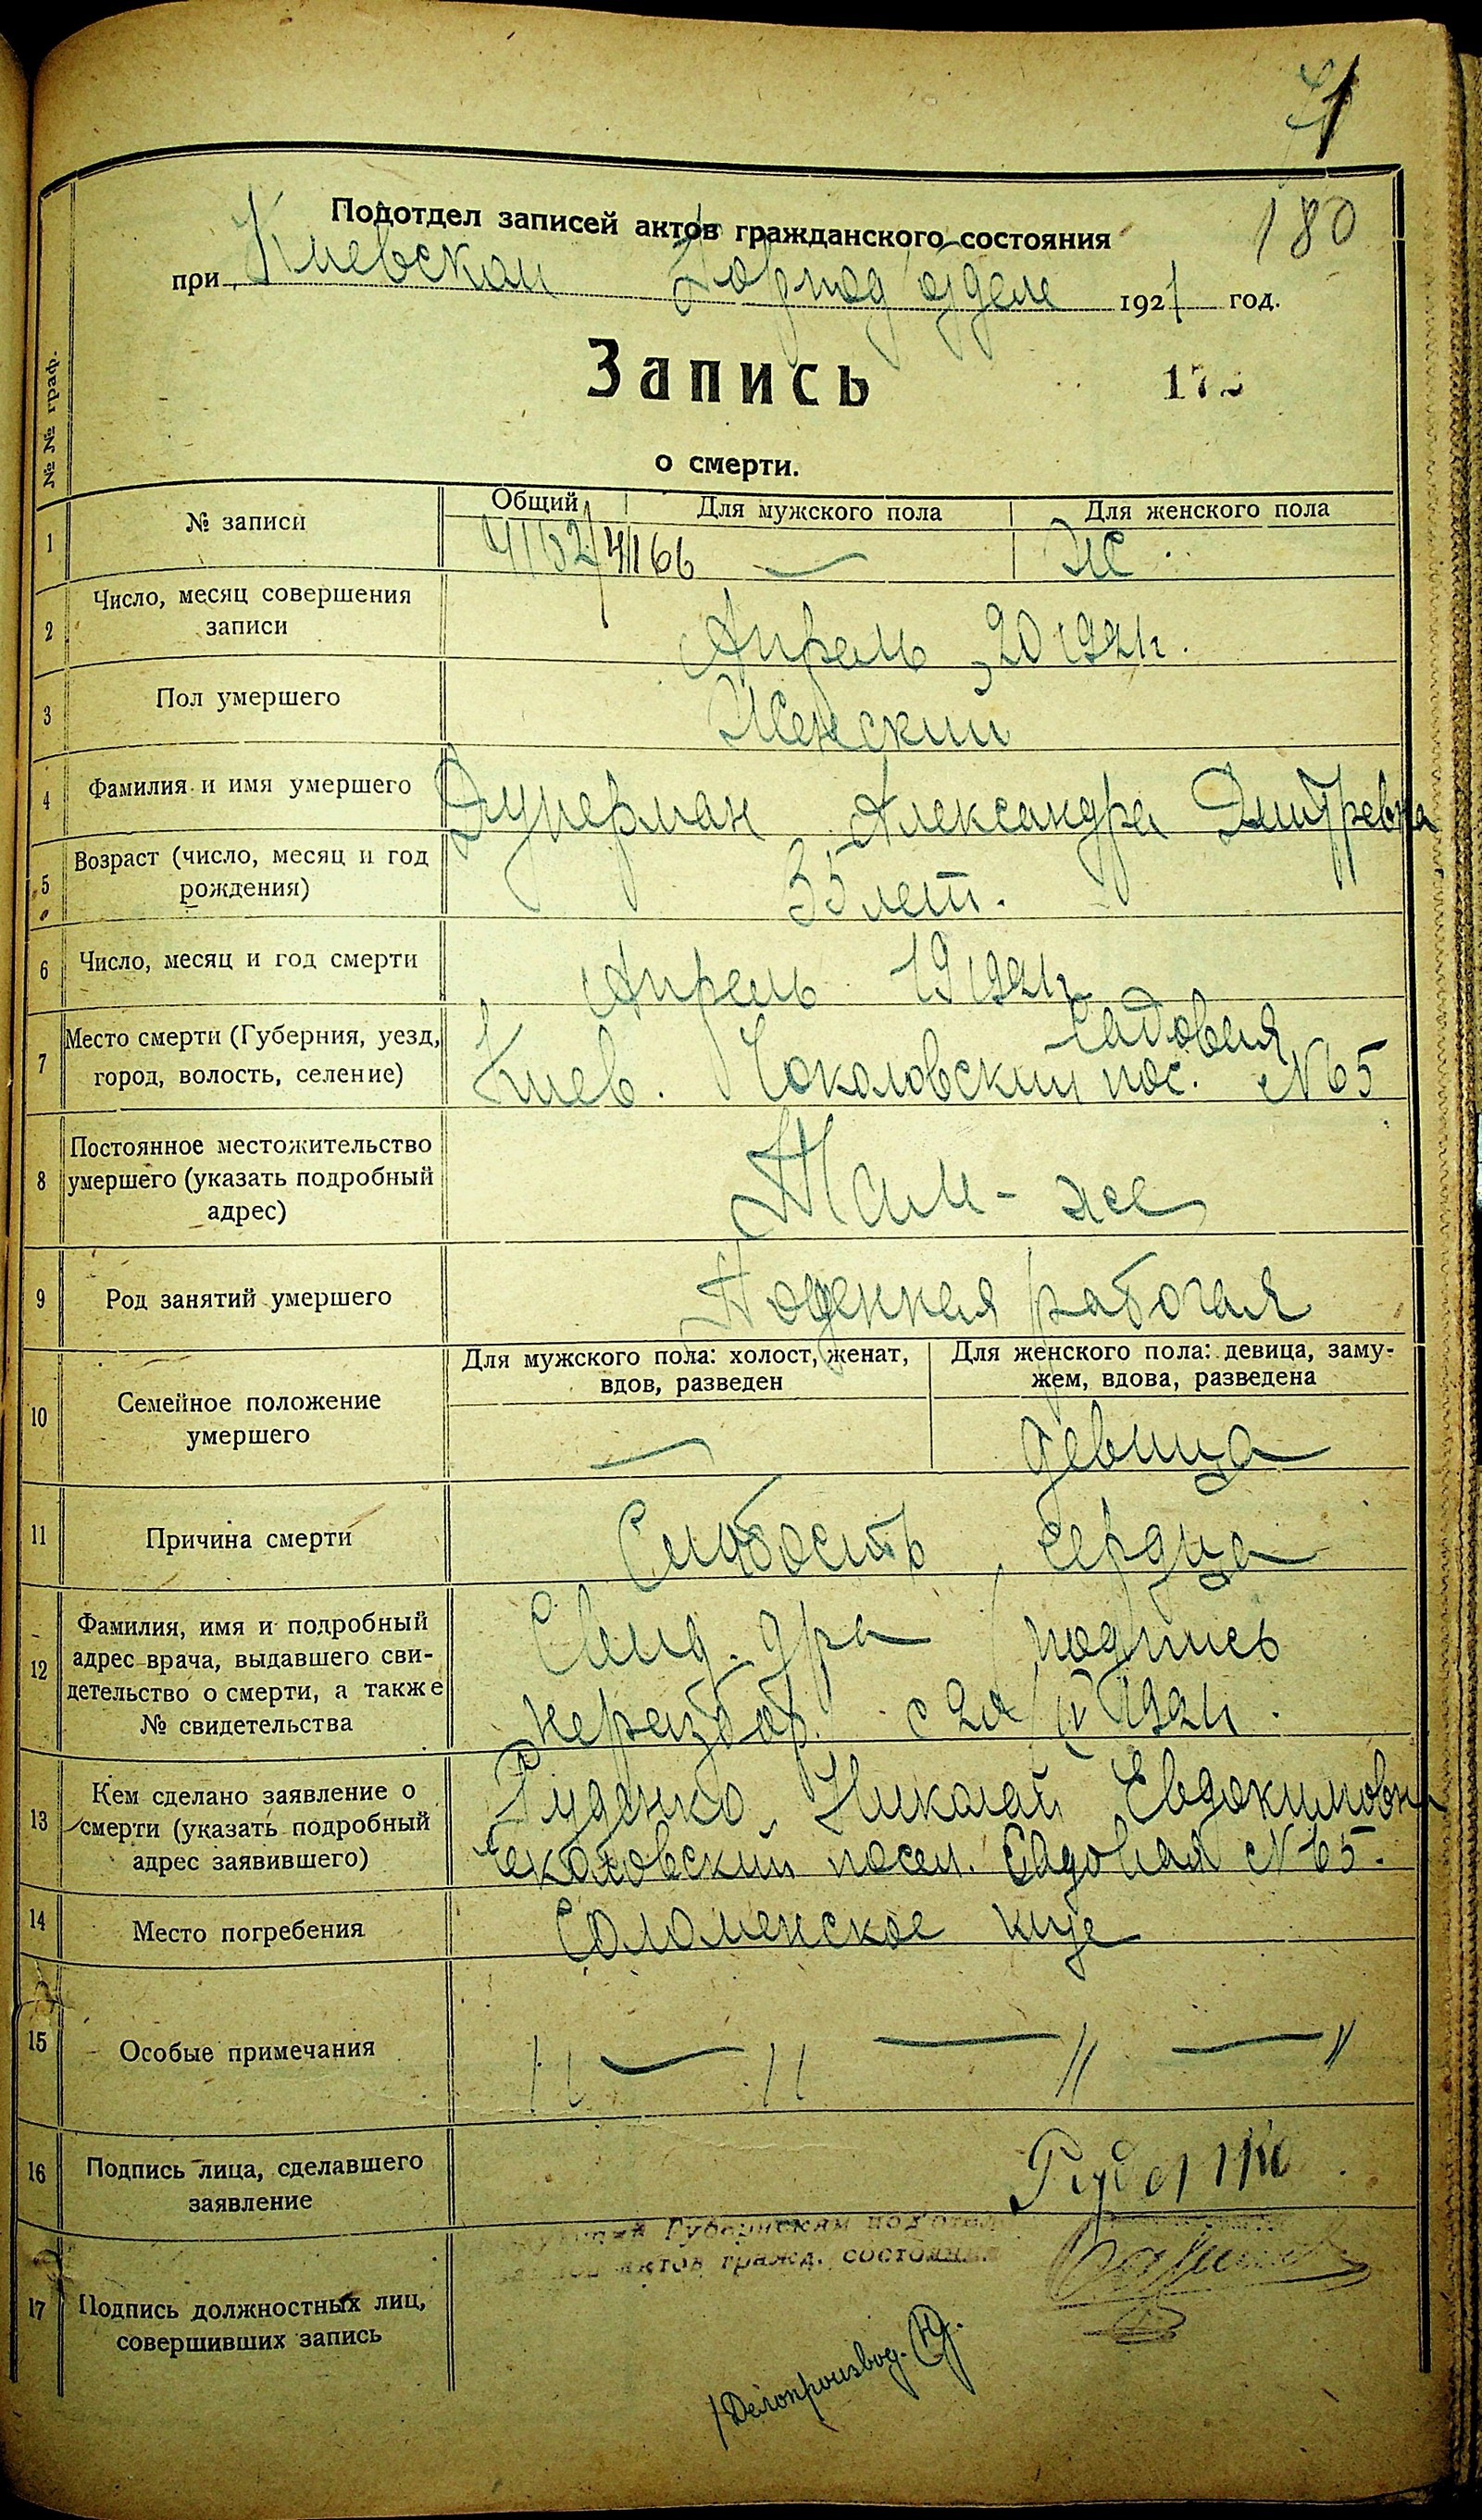 180
Подотдел записей актов гражданского состояния
при Киевском Горподотделе 1921 год.
Запись
о смерти.
№№ граф.
1 № записи Общий Для мужского пола Для женского пола
4166 — Ж
2 Число, месяц совершения
записи Апрель 20 1921 г.
3 Пол умершего Женский
4 Фамилия и имя умершего Александра Дмитревна
5 Возраст (число, месяц и год
рождения) 35 лет.
6 Число, месяц и год смерти Апрель 19 1921 г.
7 Место смерти (Губерния, уезд, Садовая
город, волость, селение) Киев. Чоколовский пос. № 65
8 Постоянное местожительство
умершего (указать подробный Там - же
адрес)
9 Род занятий умершего Поденная рабочая
10 Семейное положение
умершего
Для мужского пола: холост, женат,
вдов, разведен
Для женского пола: девица, заму-
жем, вдова, разведена
— девица
11 Причина смерти Слабость сердца
12 Фамилия, имя и подробный
адрес врача, выдавшего сви-
детельство о смерти, а также
№ свидетельства
Свид. д-ра подпись
неразбор. с 20/IV 1921 г.
13 Кем сделано заявление о
смерти (указать подробный
адрес заявившего)
Руденко Николай Евдокимович
Чоколовский посел. Садовая № 65.
14 Место погребения Соломенское к-ще
15 Особые примечания // — // — // — //
16 Подпись лица, сделавшего
заявление Руденко
17 Подпись должностных лиц,
совершивших запись
Губернским под'отд
актов гражд. состояния
Делопроизвод.